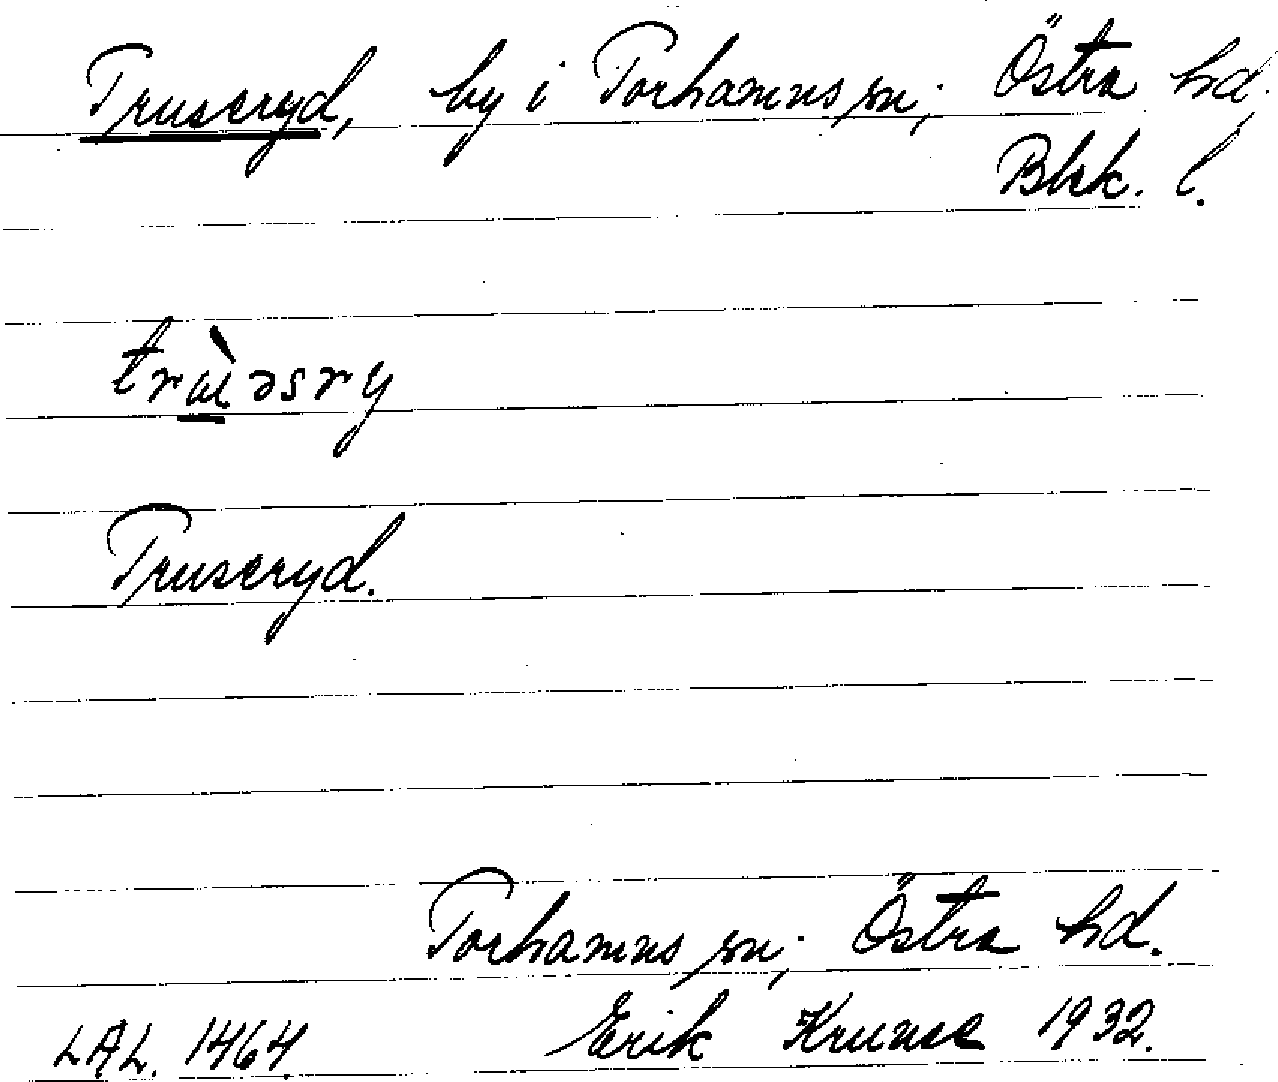 Truseryd, by i Torhamns sn; Östra hd,
Blek. l.
trùəsry
Truseryd.
Torhamns sn; Östra hd.
LAL. 1464. Erik Kruuse 1932.